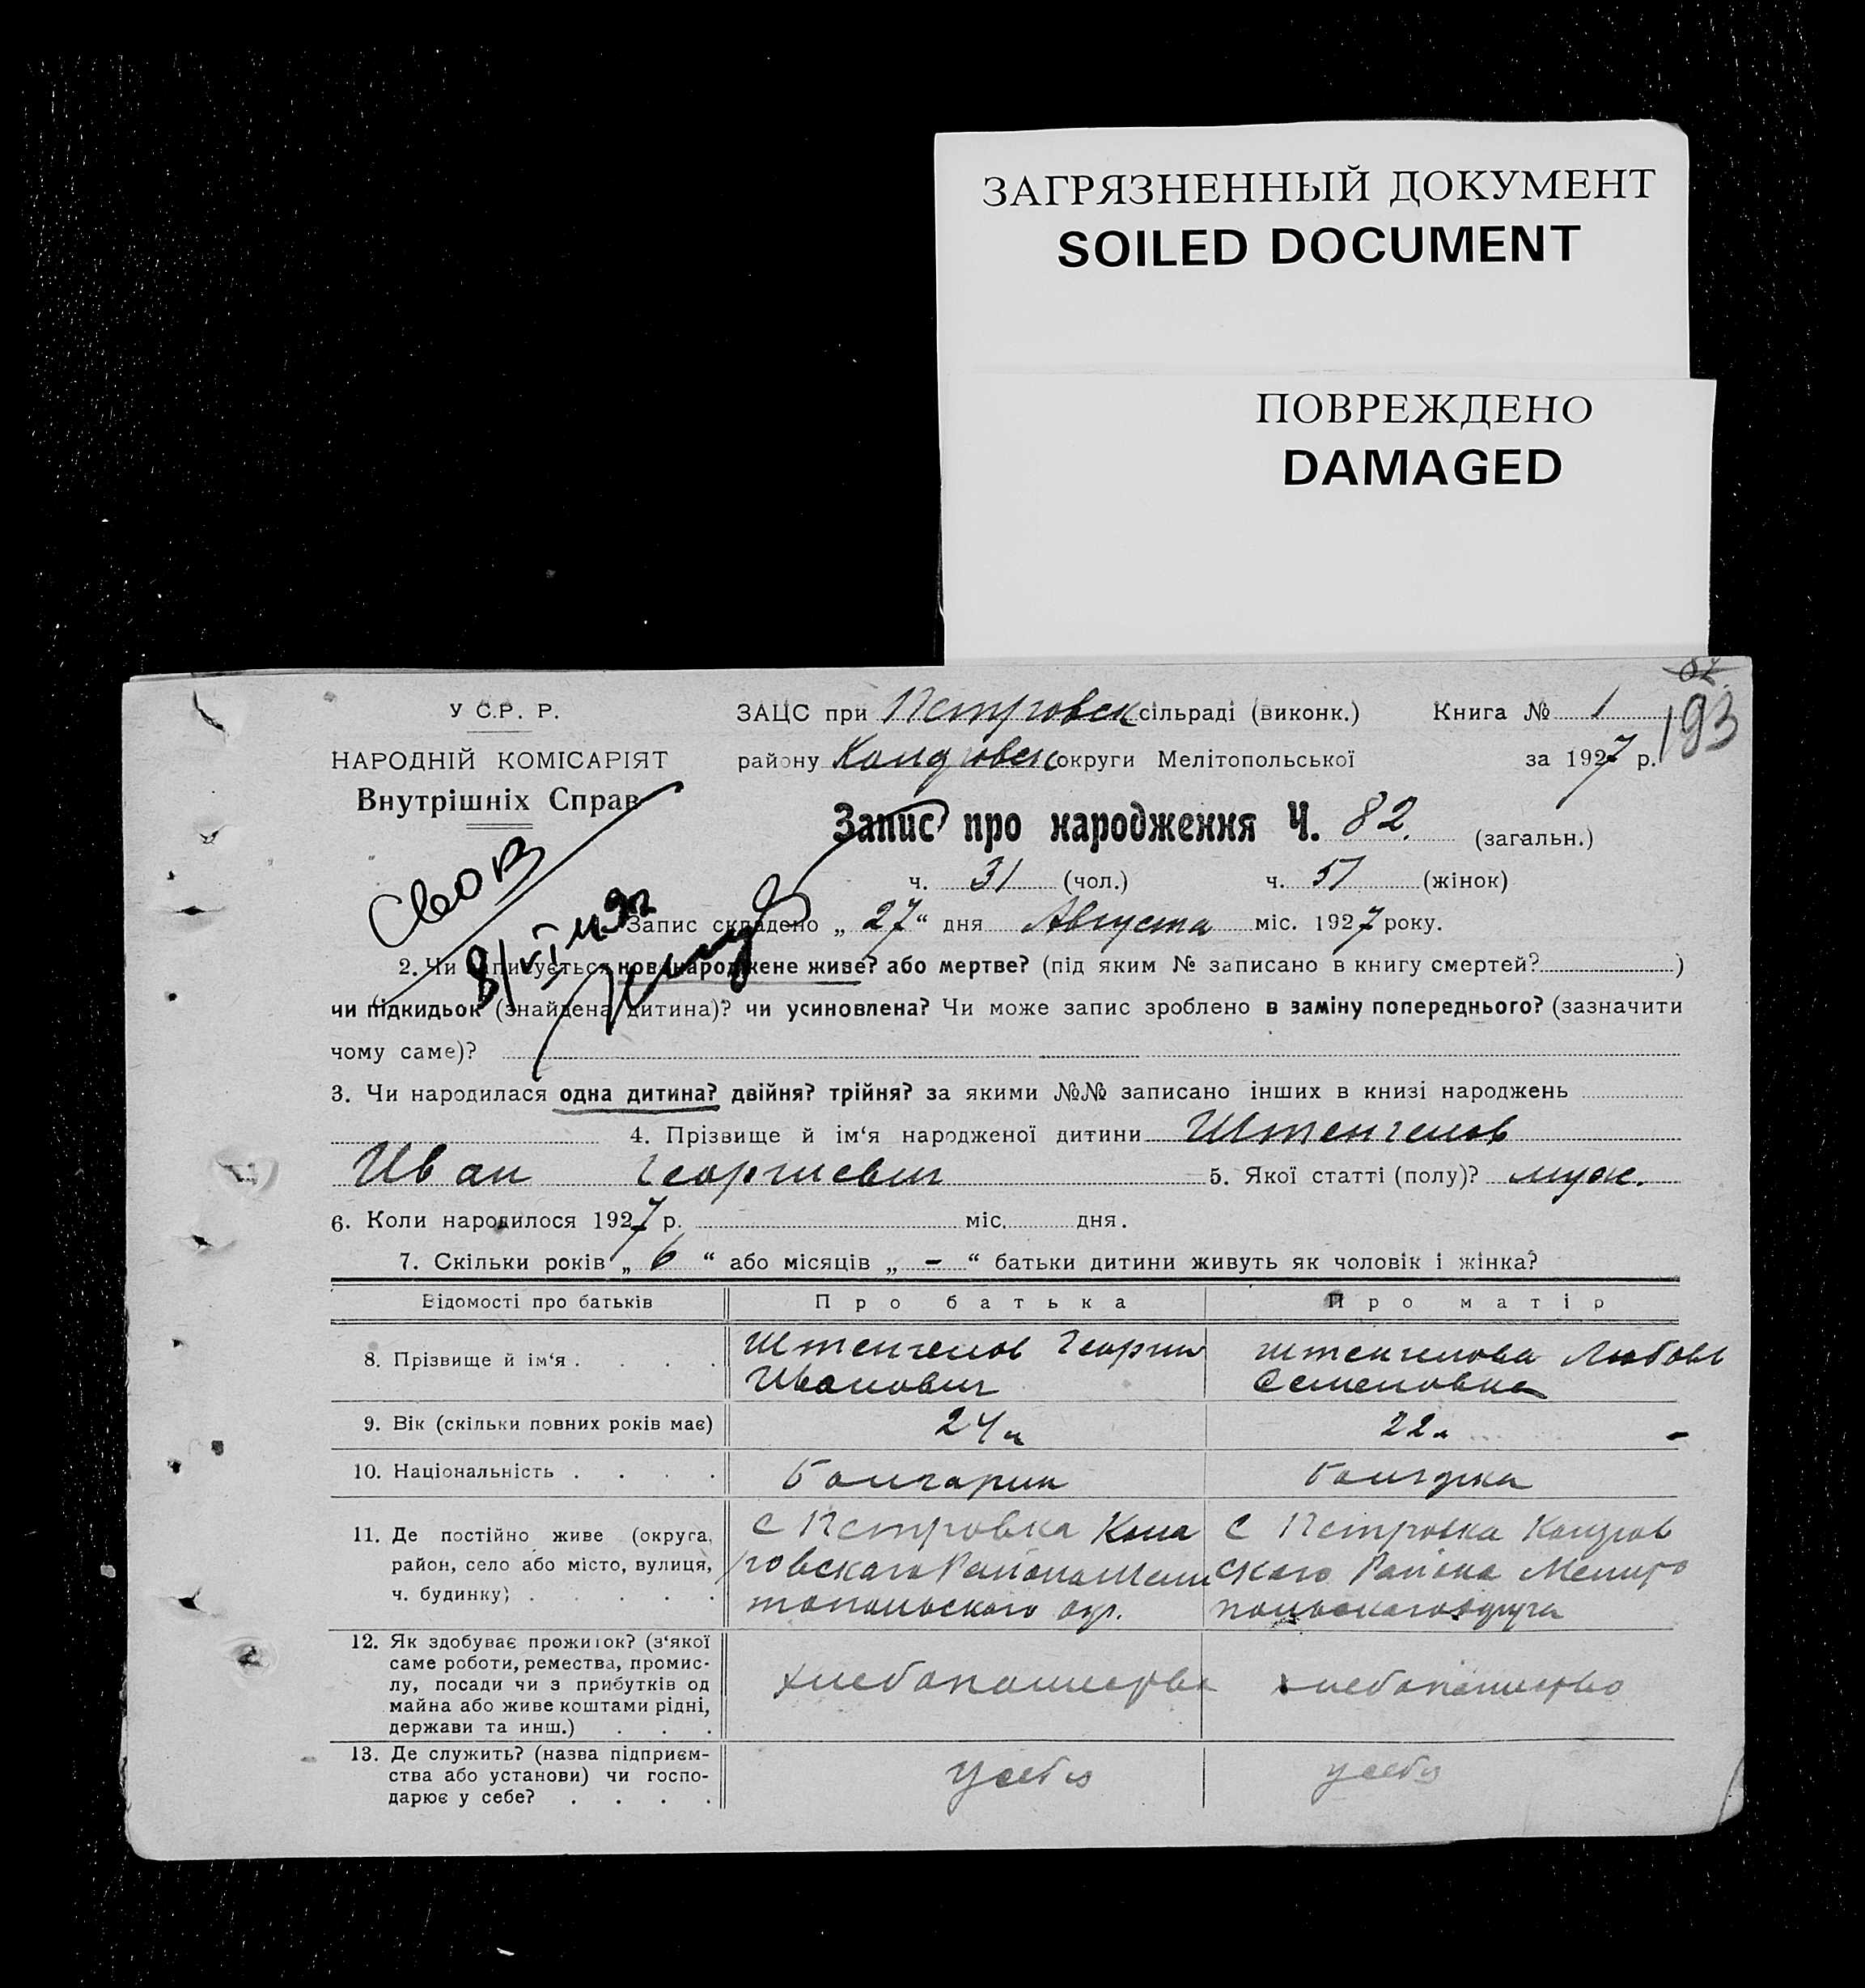 ЗАГРЯЗНЕННЫЙ ДОКУМЕНТ
SOILED DOCUMENT
ПОВРЕЖДЕНО
DAMAGED
82.
193
У С.Р. Р.
НАРОДНІЙ КОМІСАРІЯТ
Внутрішніх Справ
ЗАЦС при Петровск сільраді (виконк.) Книга № 1
району Коларовск округи Мелітопольської за 1927 р.
Запис про народження Ч. 82. (загальн.)
ч. 31 (чол.) ч. 51 (жінок)
Запис складено „ 27 “ дня Августа міс. 1927 року.
2. Чи записується новонароджене живе? або мертве? (під яким № записано в книгу смертей? )
чи підкидьок (знайдена дитина)? чи усиновлена? Чи може запис зроблено в заміну попереднього? (зазначити
чому саме)?
3. Чи народилася одна дитина? двійня? трійня? за якими №№ записано інших в книзі народжень
4. Прізвище й ім‘я народженої дитини Штенгелов
Иван Георгиевич 5. Якої статті (полу)? муж.
6. Коли народилося 1927 р. міс. дня.
7. Скільки років „ 6 “ або місяців „ - “ батьки дитини живуть як чоловік і жінка?
Відомості про батьків Про батька Про матір
8. Прізвище й ім‘я . . . . Штенгелов Георгий Иванович Штенгелова Любовь Семеновна
9. Вік (скільки повних років має) 24 22
10. Національність . . . . Болгарин болгарка
11. Де постійно живе (округа, район, село або місто, вулиця, ч. будинку) . . . . .
с Петровка Кола
ровского Района Мели
топольского окр.
с Петровка Коларов
ского Района Мелито
польского округа
12. Як здобуває прожиток? (з‘якої саме роботи, ремества, промислу, посади чи з прибутків од майна або живе коштами рідні, держави та инш.) . . . хлебопашество хлебопашество
13. Де служить? (назва підприємства або установи) чи господарює у себе? . . . . у себя у себя